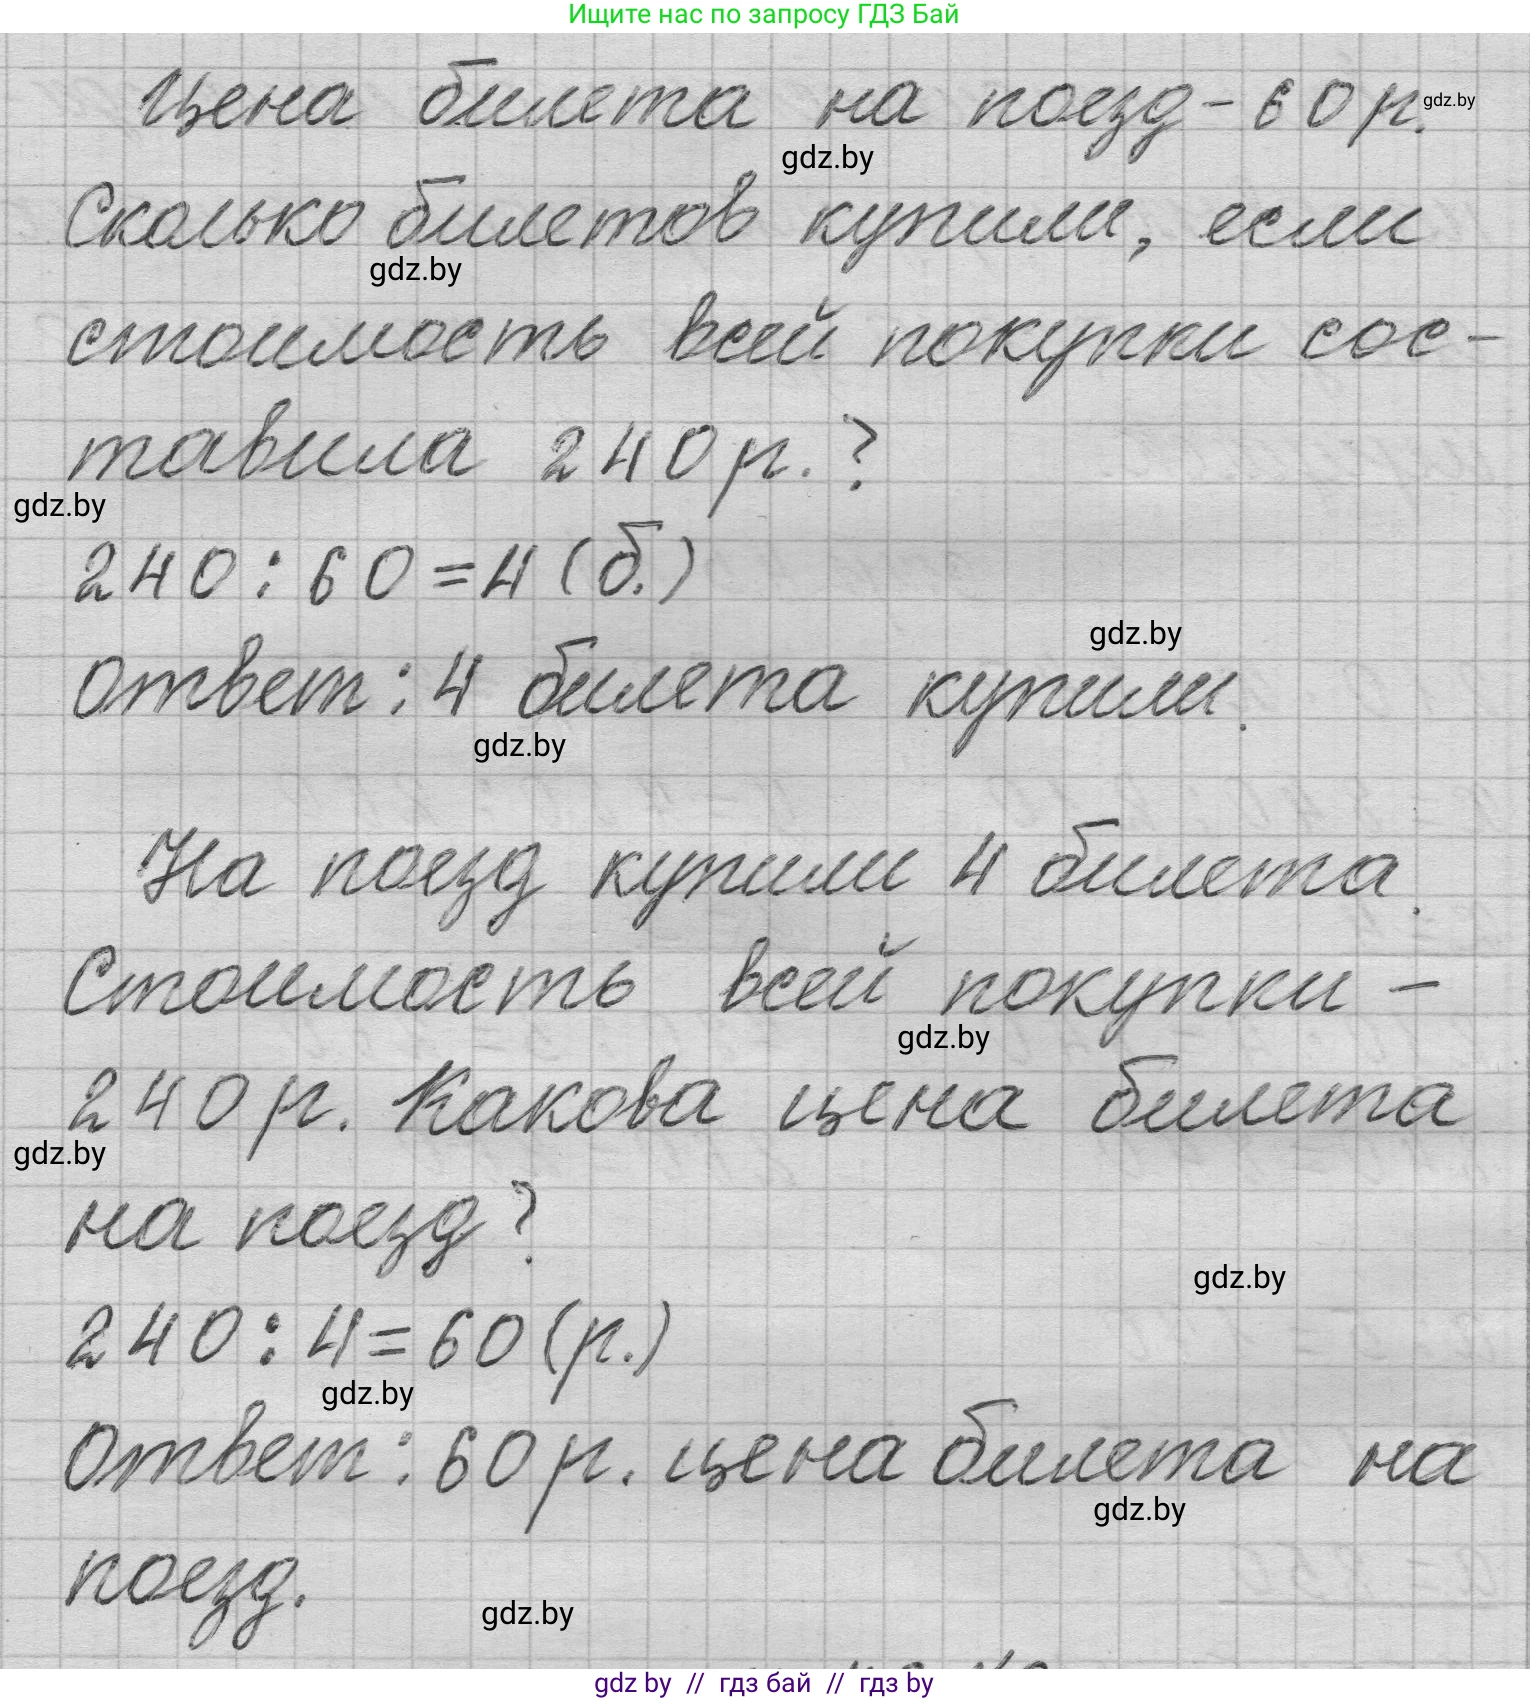 Ищите нас по запросу ГДЗ Бай
Цена билета на поезд - 60 р.
gdz.by
gdz.by
Сколько билетов купили, если
gdz.by
стоимость всей покупки сос-
тавила 240 р.?
gdz.by
240 : 60 = 4 (б.)
gdz.by
Ответ: 4 билета купили.
gdz.by
На поезд купили 4 билета.
Стоимость всей покупки -
gdz.by
240 р. Какова цена билета
gdz.by
на поезд?
gdz.by
240 : 4 = 60 (р.)
gdz.by
Ответ: 60 р. цена билета на
gdz.by
поезд.
gdz.by
gdz by // гдз бай // гдз by